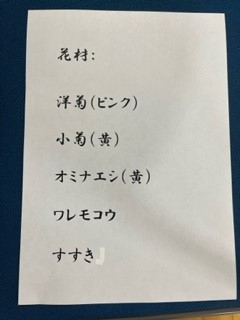 花材:
洋菊(ピンク)
小菊(黄)
オミナエシ(黄)
ワレモコウ
すすき